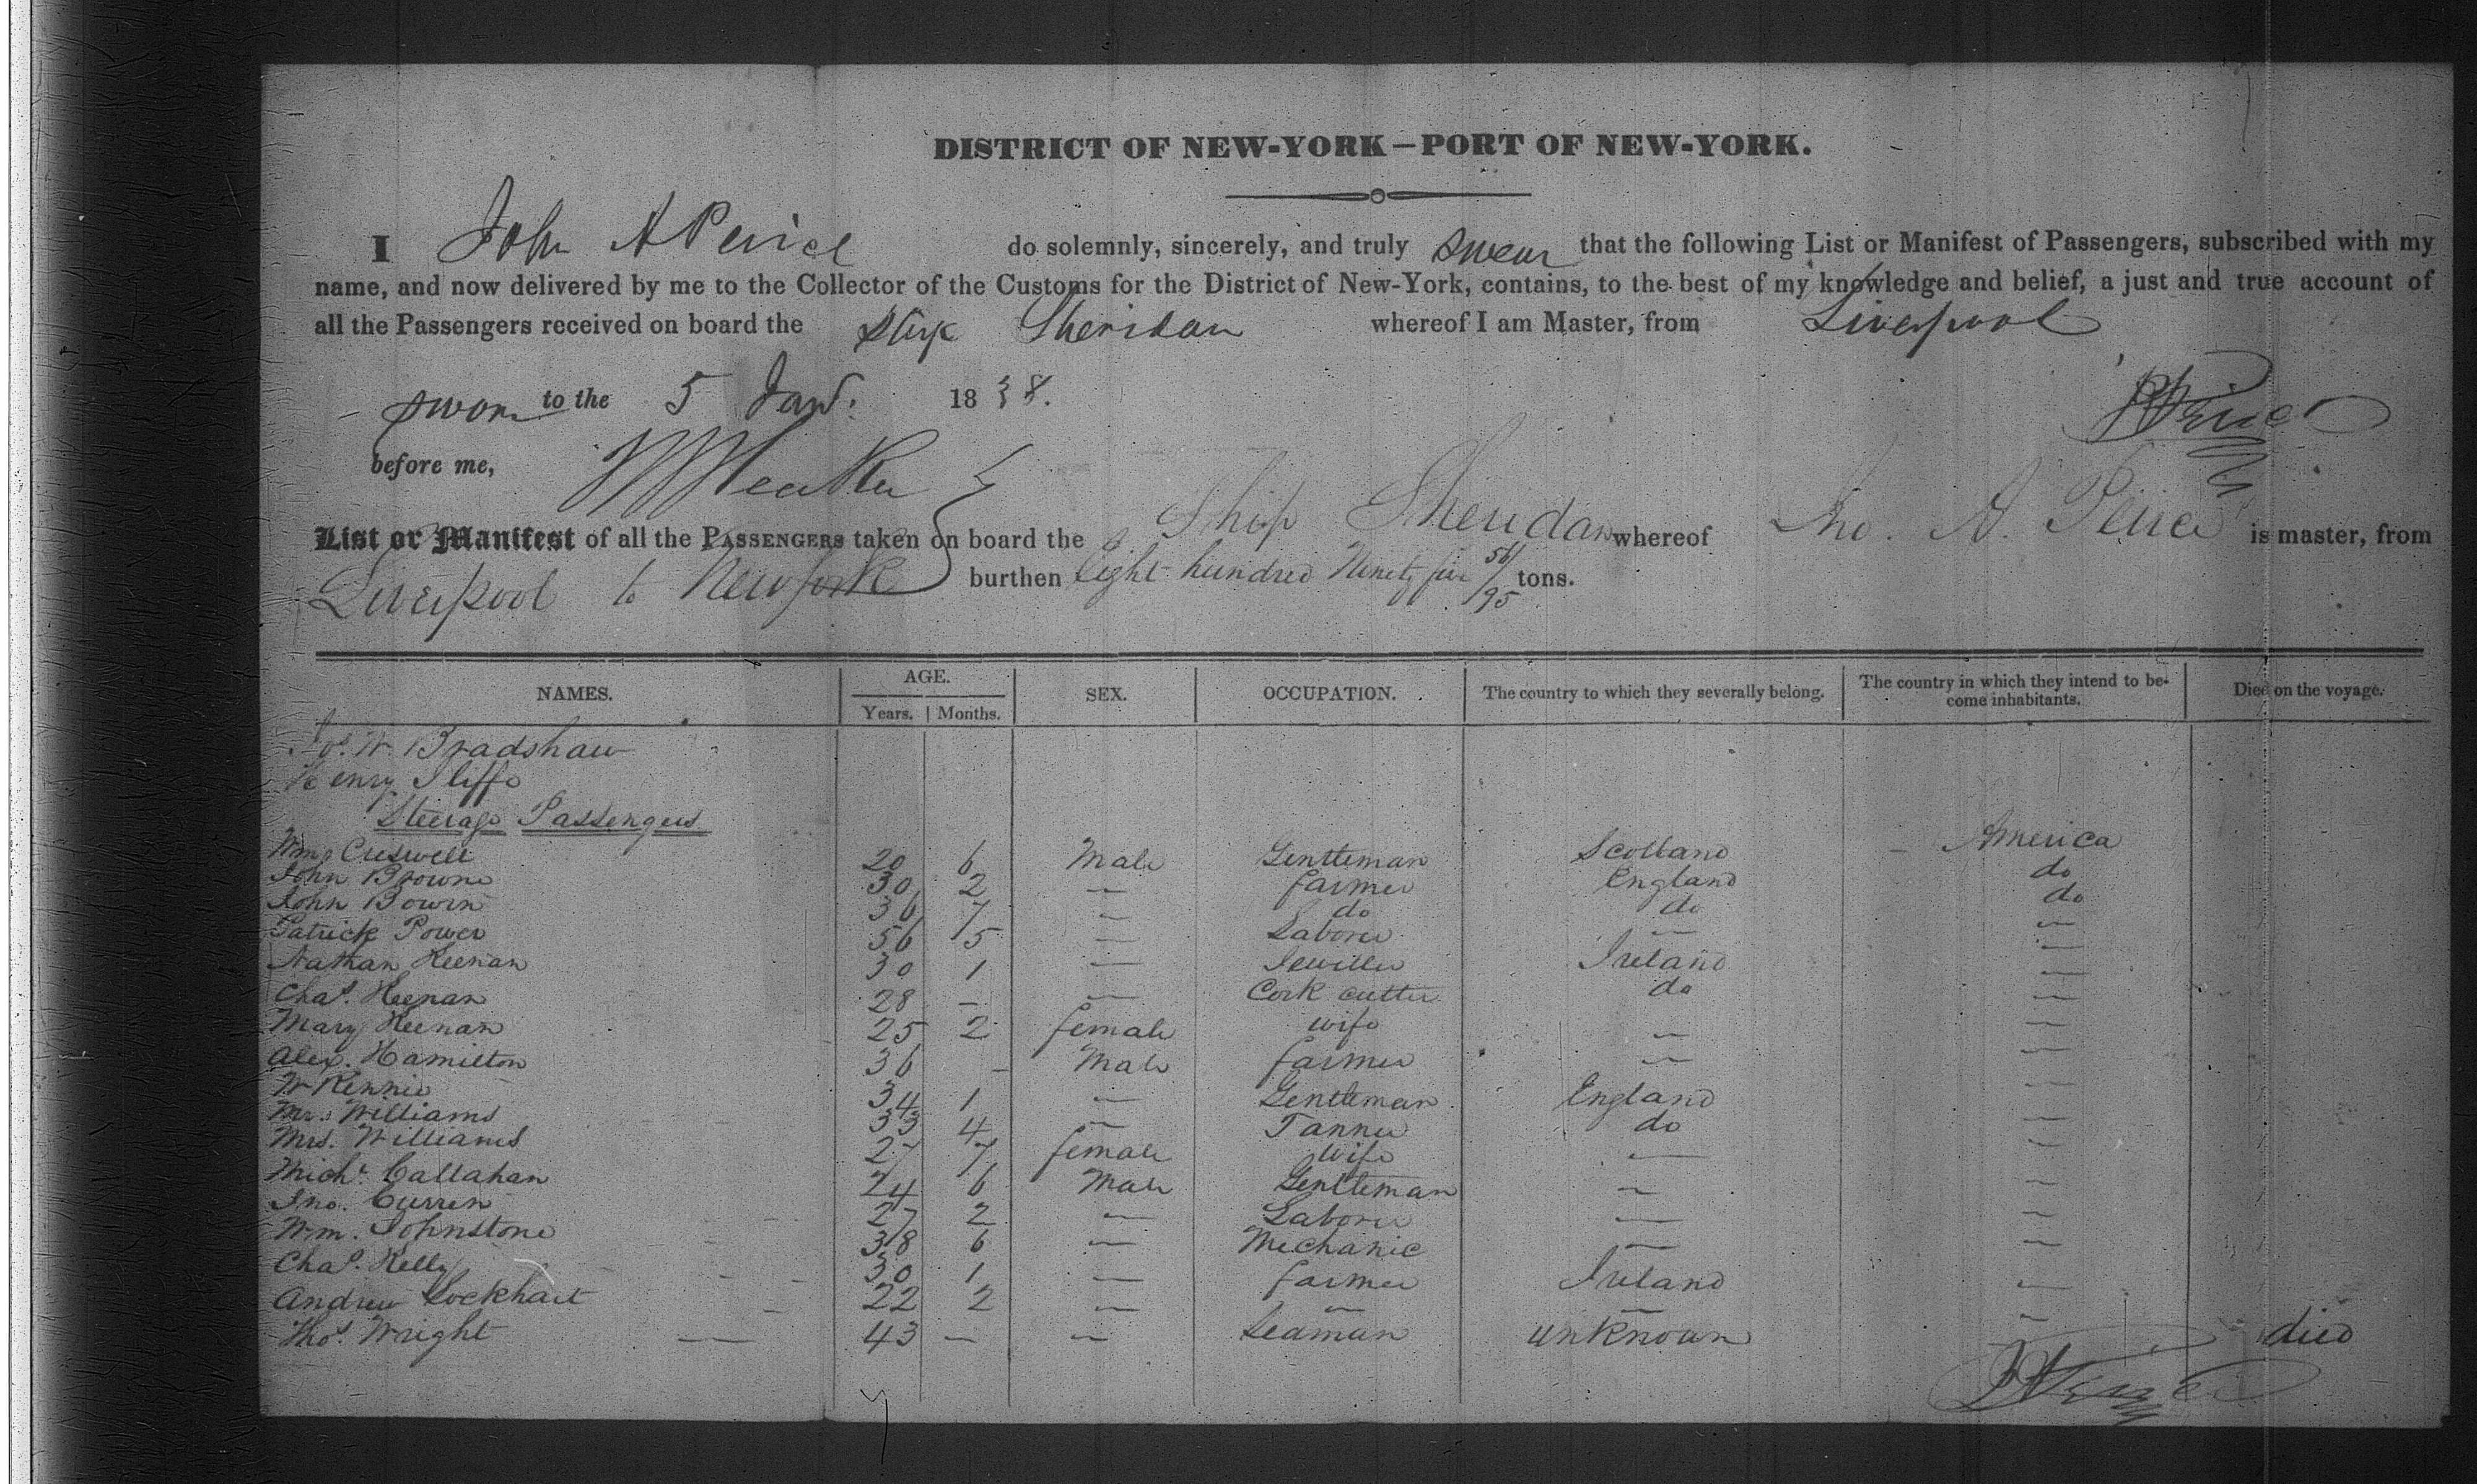 DISTRICT OF NEW-YORK—PORT OF NEW-YORK.
I John A Peirce do solemnly, sincerely, and truly swear that the following List or Manifest of Passengers, subscribed with my
name, and now delivered by me to the Collector of the Customs for the District of New-York, contains, to the best of my knowledge and belief, a just and true account of
all the Passengers received on board the Ship Sheridan whereof I am Master, from Liverpool
sworn to the 5 Jany. 1838.
before me,
List or Manifest of all the PASSENGERS taken on board the Ship Sheridan whereof Jno. A. Peirce is master, from
Liverpool to New York burthen Eight hundred Ninety five 56/95 tons.
NAMES. AGE. SEX. OCCUPATION. The country to which they severally belong. The country in which they intend to be- Died on the voyage.
Years. Months. come inhabitants.
W. Bradshaw
Henry Iliffe
Steerage Passengers
Wm. Creswell 20 6 Male Gentleman Scotland - America
John Browne 30 2 — farmer England do
John Bowin 36 7 — do do do
Patrick Power 56 5 — Laborer — —
Nathan Keenan 30 1 — Jeweller Ireland —
Chas. Keenan 28 — — Cork cutter do —
Mary Keenan 25 2 female wife — —
Alex. Hamilton 36 - Male farmer — —
W Rennie 34 1 — Gentleman England —
Mr. Williams 33 4 — Tanner do —
Mrs. Williams 27 7 female wife — —
Michl. Callahan 24 6 Male Gentleman — —
Jno. Curren 27 2 — Laborer — —
Wm. Johnstone 38 6 — Mechanic — —
Chas. Kelly 30 1 — farmer Ireland —
Andrew Lockhart 22 2 — — — —
Thos. Wright — 43 — — Seaman unknown died